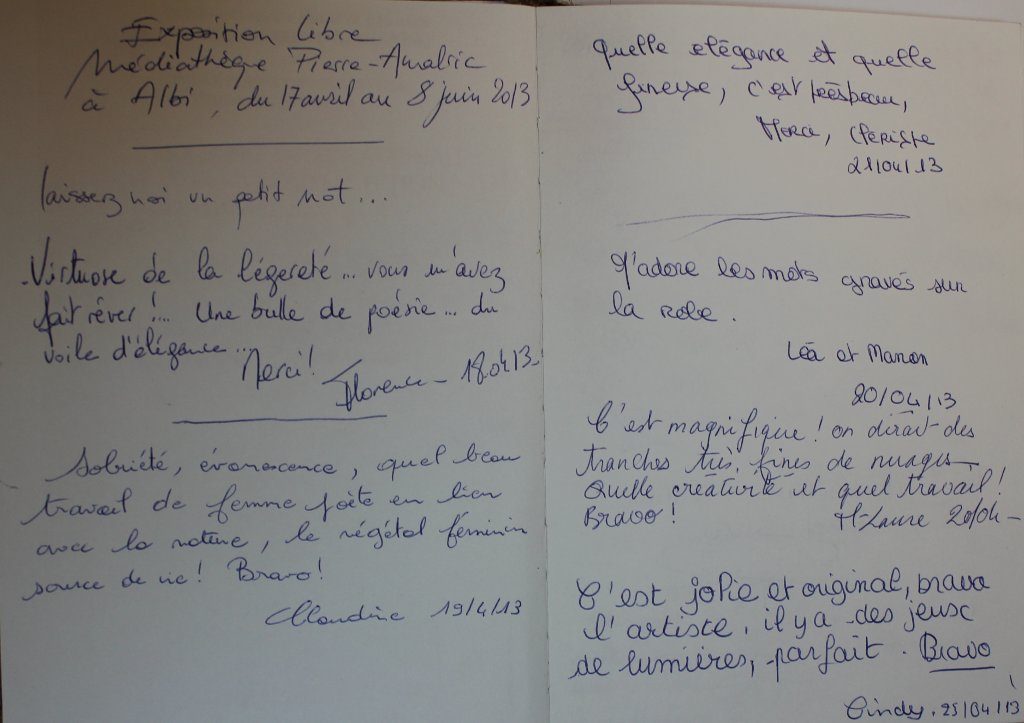 Exposition libre
Médiathèque Pierre-Amalric
à Albi, du 17 avril au 8 juin 2013
laissez moi un petit mot...
Virtuose de la légereté... vous m'avez
fait rêver !... Une bulle de poésie... du
voile d'élégance...
Merci!
Florence - 18.04.13
Sobriété, évanescence, quel beau
travail de femme poète en lien
avec la nature, le végétal féminin
source de vie! Bravo!
Claudine 19/4/13
quelle elégance et quelle
finesse, c'est très beau,
Merci, Christe
21/04/13
J'adore les mots gravés sur
la robe.
Léa et Manon
20/04/13
C'est magnifique! on dirait des
tranches très fines de nuages
Quelle créativité et quel travail!
Bravo! M-Laure 20/04 -
C'est jolie et original, bravo
l'artiste, il y a des jeux
de lumières, parfait. Bravo
!
Cindy. 25/04/13